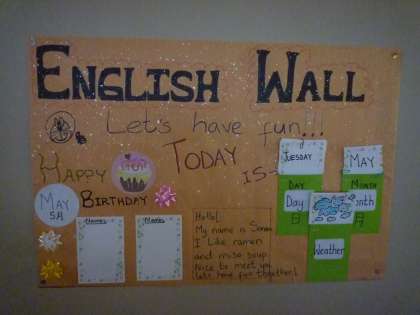 ENGLISH WALL
Let's have fun!!!
TODAY
IS-
TUESDAY
MAY
HAPPY
BIRTHDAY
MAY
5H
DAY
MONTH
Day
Weather
Hello!
My name is
I like ramen
and miso soup.
Nice to meet you
Lets have fun together!